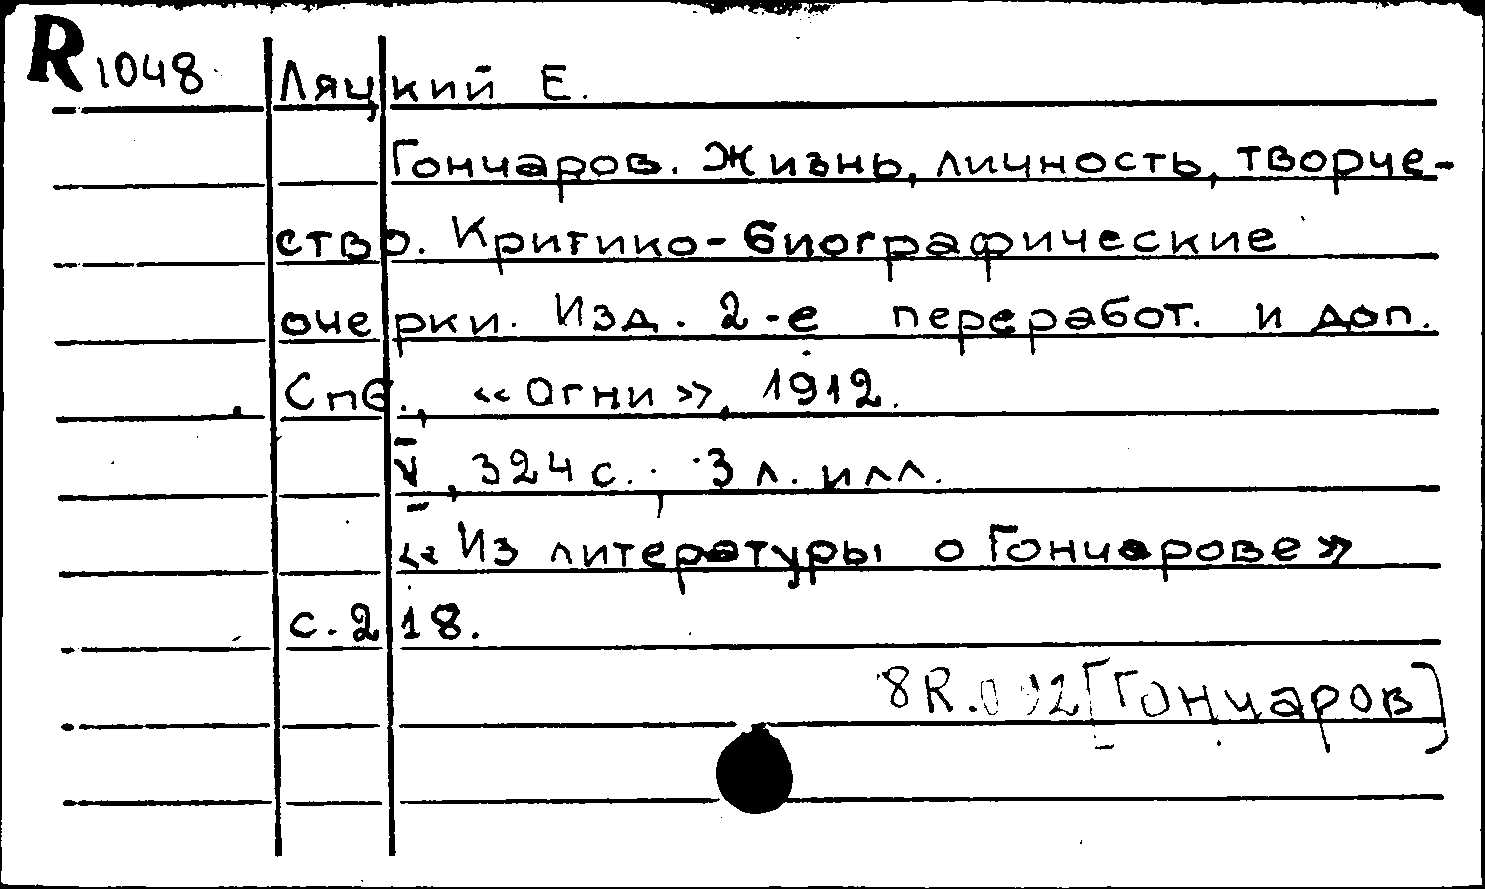 R 1048 Ляцкий Е.
Гончаров. Жизнь, личность, творче-
ство. Критико-биографические
очерки. Изд. 2-е переработ. и доп.
Спб., «Огни», 1912.
V, 324 с., 3 л. илл.
«Из литературы о Гончарове»
с. 218.
8R.092[Гончаров]